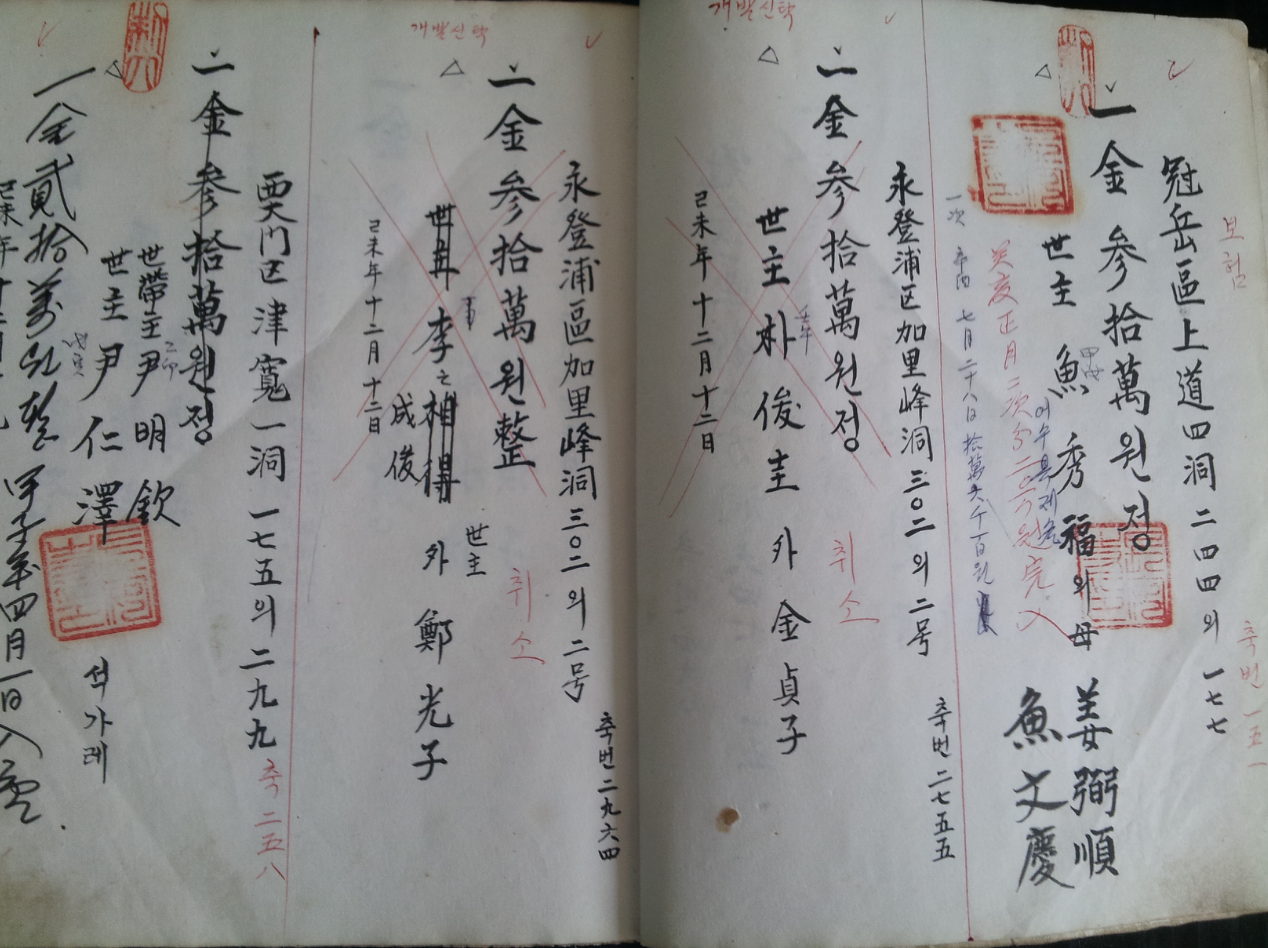 보험
冠岳區上道四洞二四四의一七七
축번一五一
一金參拾萬원정
世主 魚秀福의母 姜弼順
魚文慶
甲午
庚申正月二次分二0万원完入
一次 七月二十八日
永登浦区加里峰洞三〇二의二号
축번二七五五
개발신탁
一金參拾萬원정
취소
世主朴俊圭外金貞子
壬午
己未年十二月十二日
永登浦區加里峰洞三〇二의二号
축번二九六四
개발신탁
一金參拾萬원整
취소
世主李相得外鄭光子
世主
成俊
己未年十二月十二日
西大門区津寬一洞一七五의二九九
축二五八
一金參拾萬원정
世帶主尹明欽
世主尹仁澤
석가레
一金貳拾萬원整 甲子年四月一日入金
己未年十二月